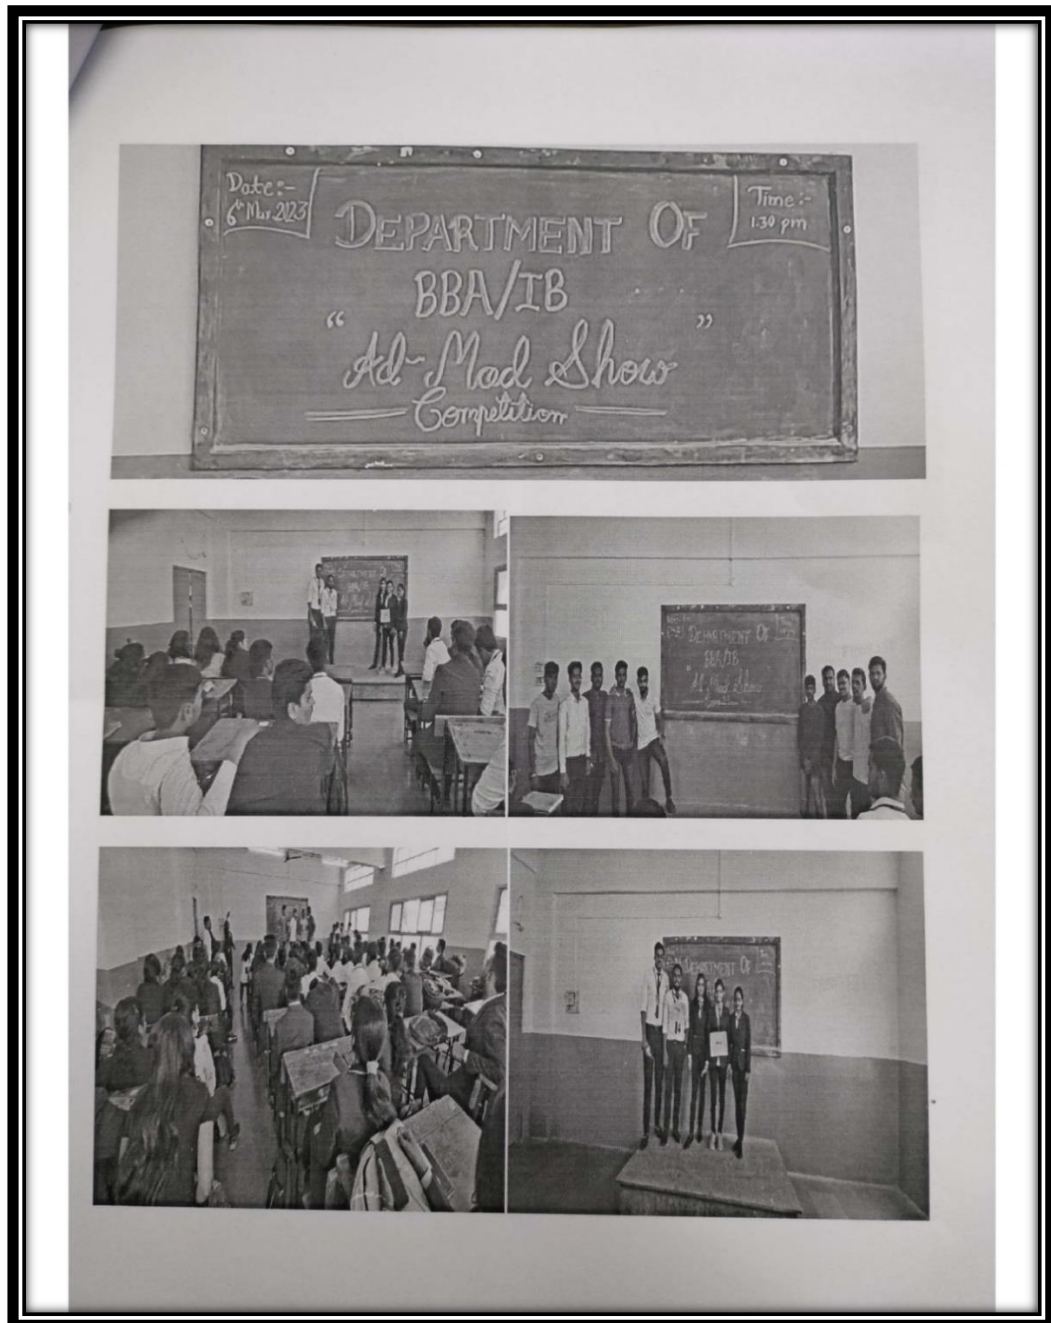 Date:-
6th Mar. 2023
Time:-
1.30 pm
DEPARTMENT OF
BBA/IB
“ Ad-Mad Show ”
Competition
DEPARTMENT OF
BBA/IB
DEPARTMENT OF
BBA/IB
Ad-Mad Show
DEPARTMENT OF